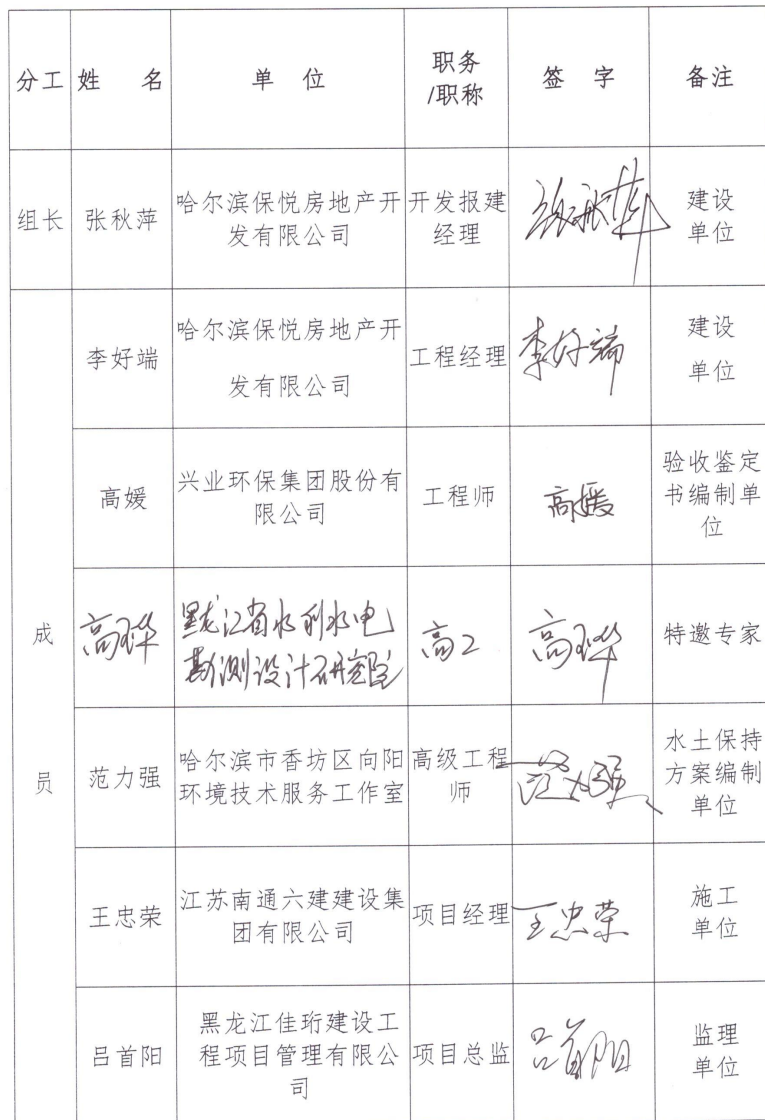 分工 姓 名 单 位 职务/职称 签 字 备注
组长 张秋萍 哈尔滨保悦房地产开发有限公司 开发报建经理 张秋萍 建设单位
成员
李好端 哈尔滨保悦房地产开发有限公司 工程经理 李好端 建设单位
高媛 兴业环保集团股份有限公司 工程师 高媛 验收鉴定书编制单位
高玉华 黑龙江省水利水电勘测设计研究院 高工 高玉华 特邀专家
范力强 哈尔滨市香坊区向阳环境技术服务工作室 高级工程师 范力强 水土保持方案编制单位
王忠荣 江苏南通六建建设集团有限公司 项目经理 王忠荣 施工单位
吕首阳 黑龙江佳珩建设工程项目管理有限公司 项目总监 吕首阳 监理单位